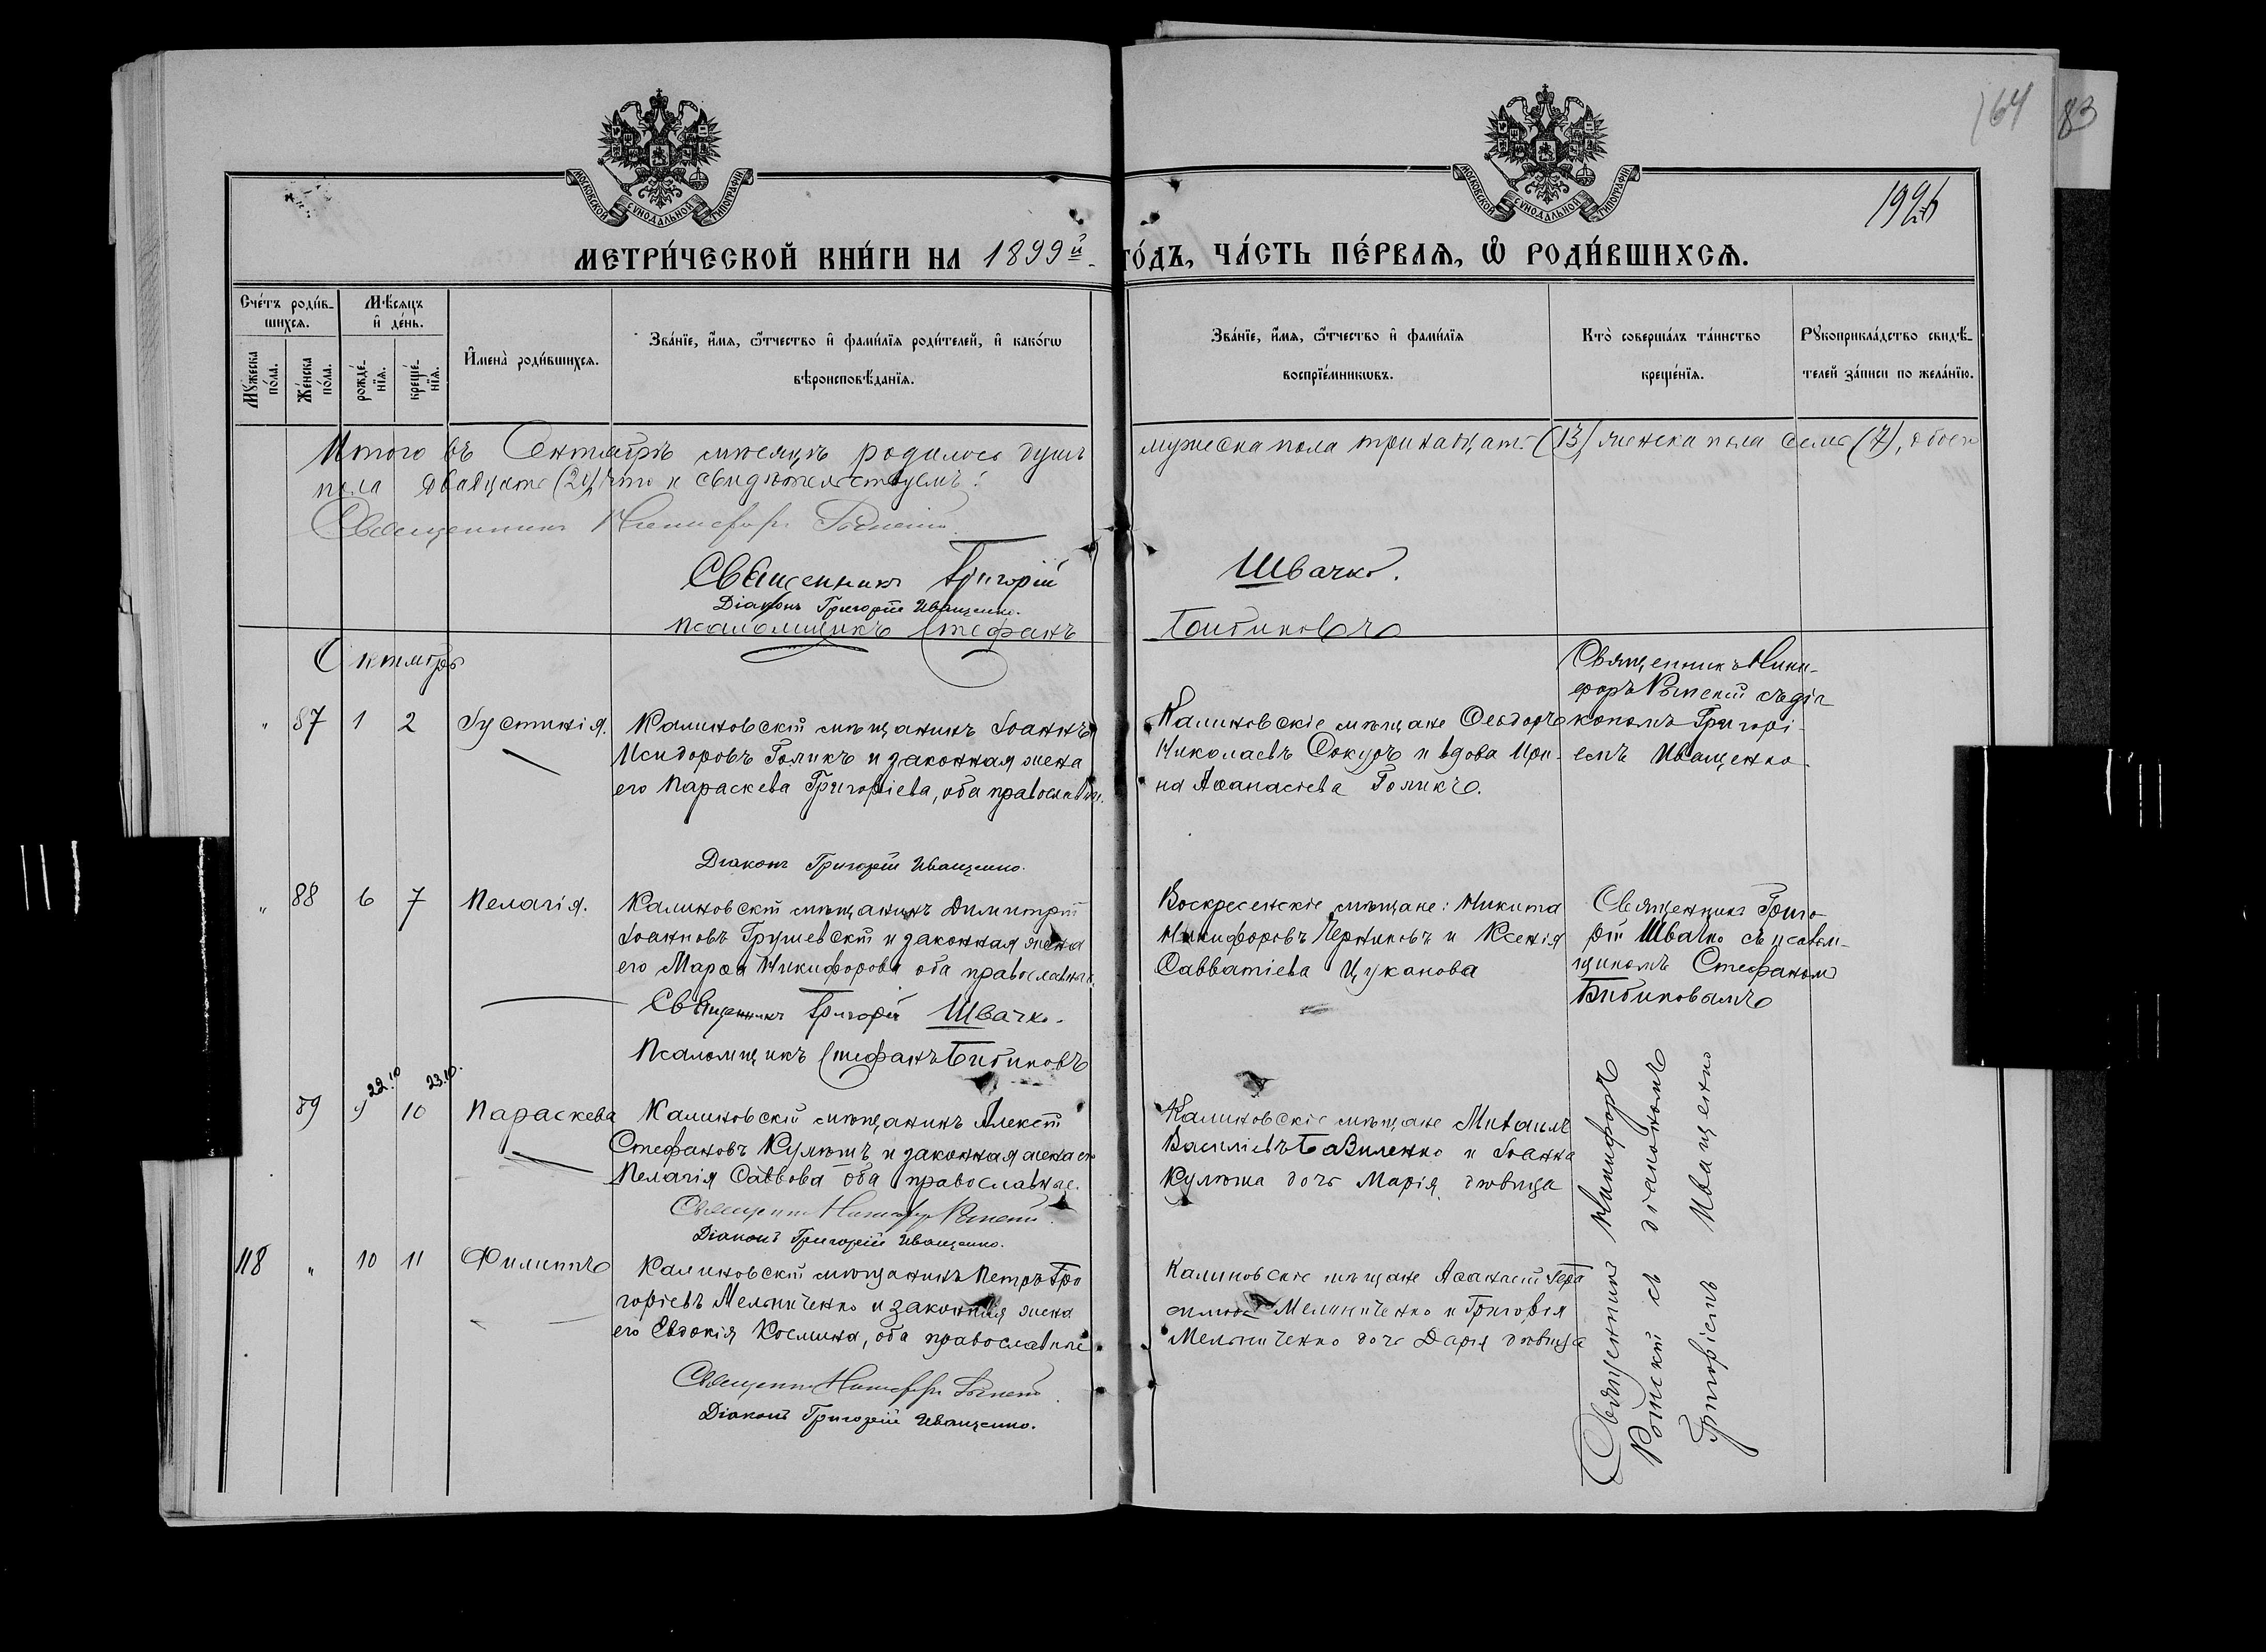 164
83
МОСКОВСКОЙ СѴНОДАЛЬНОЙ ТИПОГРАФІИ
МОСКОВСКОЙ СѴНОДАЛЬНОЙ ТИПОГРАФІИ
МЕТРИ́ЧЕСКОЙ КНИ́ГИ НА 1899й
ГО́ДЪ, ЧА́СТЬ ПЕ́РВАѦ, Ѡ҆ РОДИ́ВШИХСѦ.
Сче́тъ роди́в-
шихсѧ.
Мꙋ́жеска по́ла.
Же́нска по́ла.
Мѣ́сѧцъ
и҆ де́нь.
рожде́-
нїѧ.
креще́-
нїѧ.
И҆мена̀ роди́вшихсѧ.
Зва́нїе, и҆́мѧ, ѻ҆́тчество и҆ фами́лїѧ роди́телей, и҆ како́гѡ
вѣроисповѣ́данїѧ.
Зва́нїе, и҆́мѧ, ѻ҆́тчество и҆ фами́лїѧ
воспрїе́мникѡвъ.
Кто̀ соверша́лъ та́инство
креще́нїѧ.
Рꙋкоприкла́дство свидѣ́-
телей за́писи по жела́нїю.
Итого въ Сентябрѣ мѣсяцѣ родилось душъ мужеска пола тринадцать (13) женска пола семь (7), обоего
пола двадцать (20) что и свидѣтельствуемъ:
Священникъ Никифоръ
Священникъ Григорій Швачко.
Діаконъ Григорій Иващенко.
Псаломщикъ Стефанъ Бибиковъ
Октябрь
" 87 1 2 Іустинія.
Калиновскій мѣщанинъ Іоаннъ
Исидоровъ Голикъ и законная жена
его Параскева Григоріева, оба православн.
Діаконъ Григорій Иващенко.
Калиновскіе мѣщане Ѳеодоръ
Николаевъ Сокуръ и вдова Ири-
на Аѳанасіева Голикъ.
Священникъ Ники-
форъ съ діа
кономъ Григорі-
емъ Иващенко.
" 88 6 7 Пелагія.
Калиновскій мѣщанинъ Димитрій
Іоанновъ Грушевскій и законная жена
его Марѳа Никифорова оба православные.
Священникъ Григорій Швачко.
Псаломщикъ Стефанъ Бибиковъ
Воскресенскіе мѣщане: Никита
Никифоровъ и Ксенія
Савватіева Цуканова
Священникъ Григо
рій Швачко съ псалом-
щикомъ Стефаномъ
Бибиковымъ
22.10 23.10.
89 9 10 Параскева
Калиновскій мѣщанинъ Алексій
Стефановъ Кулешъ и законная жена его
Пелагія Саввова оба православные.
Священникъ Никифоръ
Діаконъ Григорій Иващенко.
Калиновскіе мѣщане Михаилъ
Василіевъ Базиленко и Іоанна
Кулеша дочь Марія дѣвица
118 " 10 11 Филиппъ
Калиновскій мѣщанинъ Петръ Гри
горіевъ Мельниченко и законная жена
его Евдокія Космина, оба православные
Священникъ Никифоръ
Діаконъ Григорій Иващенко.
Калиновскіе мѣщане Аѳанасій
Мельниченко и Григорія
Мельниченко дочь Дарія дѣвица
Священникъ Никифоръ
съ діакономъ
Григоріемъ Иващенко